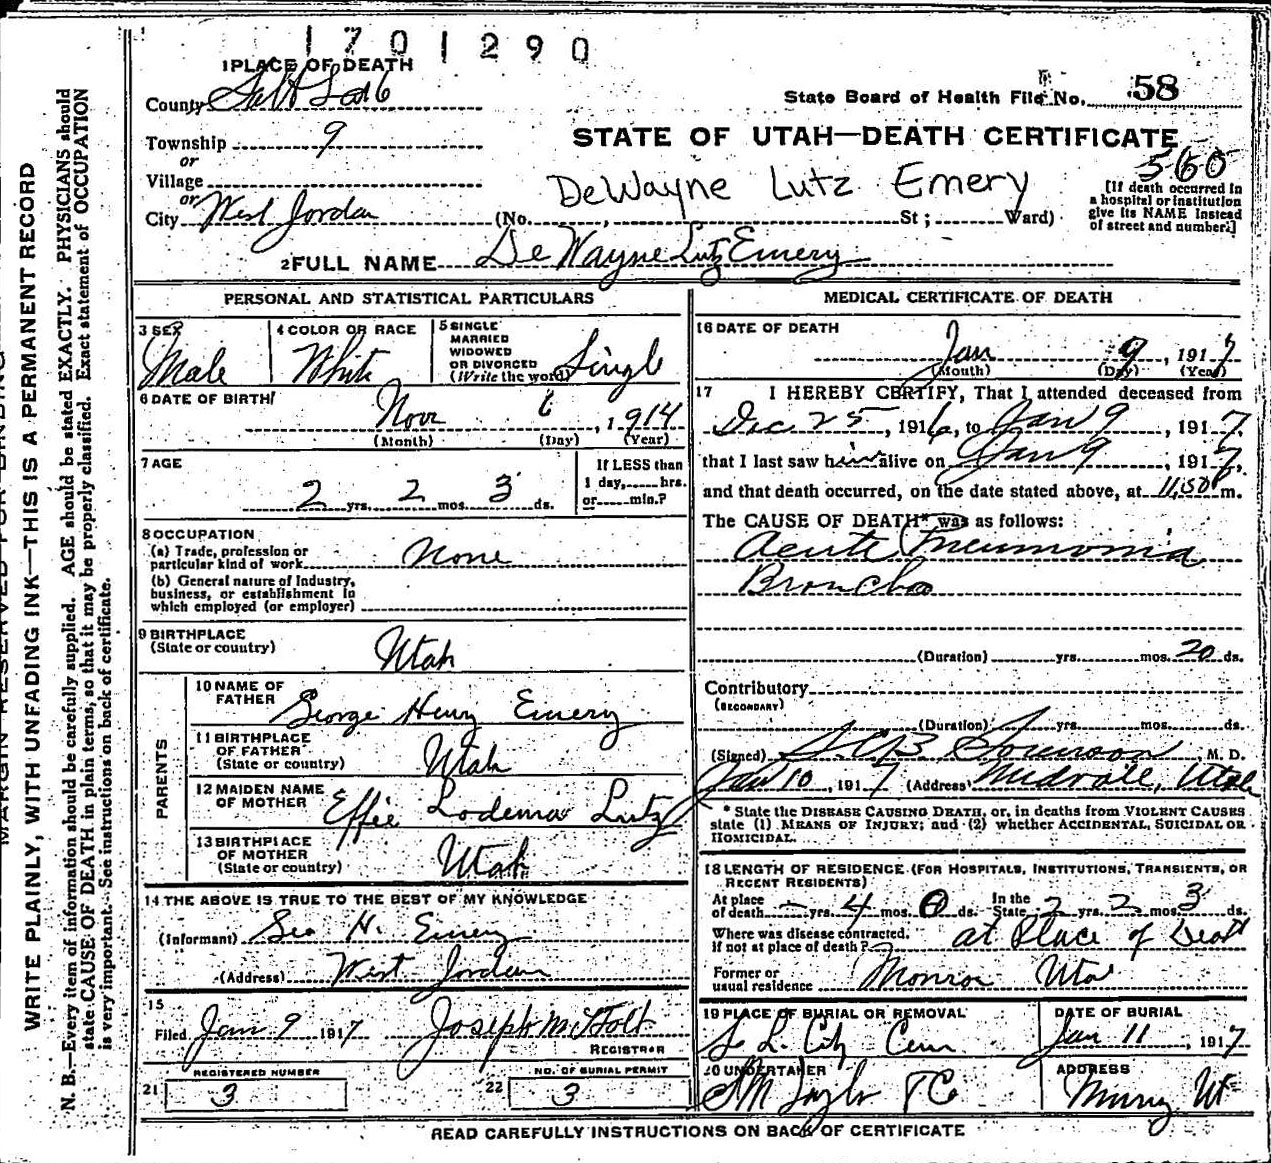 1701290
1 PLACE OF DEATH
County Salt Lake
State Board of Health File No. 58
Township 9
STATE OF UTAH—DEATH CERTIFICATE
or
Village
560
DeWayne Lutz Emery
[If death occurred in
a hospital or institution
give its NAME instead
of street and number.]
or
City West Jordan (No. , St; Ward)
2 FULL NAME De Wayne Lutz Emery
PERSONAL AND STATISTICAL PARTICULARS
3 SEX Male
4 COLOR OR RACE White
5 SINGLE
MARRIED
WIDOWED
OR DIVORCED
(Write the word) Single
6 DATE OF BIRTH
Nov 6, 1914
(Month) (Day) (Year)
7 AGE
2 yrs. 2 mos. 3 ds.
If LESS than
1 day, hrs.
or min.?
8 OCCUPATION
(a) Trade, profession or
particular kind of work None
(b) General nature of industry,
business, or establishment in
which employed (or employer)
9 BIRTHPLACE
(State or country) Utah
PARENTS
10 NAME OF
FATHER George Henry Emery
11 BIRTHPLACE
OF FATHER
(State or country) Utah
12 MAIDEN NAME
OF MOTHER Effie Lodema Lutz
13 BIRTHPLACE
OF MOTHER
(State or country) Utah
14 THE ABOVE IS TRUE TO THE BEST OF MY KNOWLEDGE
(Informant) Geo H. Emery
(Address) West Jordan
15
Filed Jan 9 1917 Joseph M Holt
REGISTRAR
21 REGISTERED NUMBER 3
22 NO. OF BURIAL PERMIT 3
MEDICAL CERTIFICATE OF DEATH
16 DATE OF DEATH
Jan 9, 1917
(Month) (Day) (Year)
17 I HEREBY CERTIFY, That I attended deceased from
Dec 25, 1916, to Jan 9, 1917,
that I last saw him alive on Jan 9, 1917,
and that death occurred, on the date stated above, at 11,50 m.
The CAUSE OF DEATH* was as follows:
Acute Pneumonia
Broncho
(Duration) yrs. mos. 20 ds.
Contributory
(SECONDARY)
(Duration) yrs. mos. ds.
(Signed) Sorenson M. D.
Jan 10, 1917 (Address) Midvale, Utah
* State the DISEASE CAUSING DEATH, or, in deaths from VIOLENT CAUSES
state (1) MEANS OF INJURY; and (2) whether ACCIDENTAL, SUICIDAL OR
HOMICIDAL.
18 LENGTH OF RESIDENCE (FOR HOSPITALS, INSTITUTIONS, TRANSIENTS, OR
RECENT RESIDENTS)
At place
of death - yrs. 4 mos. 0 ds. In the State 2 yrs. 2 mos. 3 ds.
Where was disease contracted,
if not at place of death? at Place of Death
Former or
usual residence Monroe Utah
19 PLACE OF BURIAL OR REMOVAL
S. L. City Cem
DATE OF BURIAL
Jan 11, 1917
20 UNDERTAKER
Taylor
ADDRESS
Murray Ut
READ CAREFULLY INSTRUCTIONS ON BACK OF CERTIFICATE
MARGIN RESERVED FOR BINDING
WRITE PLAINLY, WITH UNFADING INK—THIS IS A PERMANENT RECORD
N. B.—Every item of information should be carefully supplied. AGE should be stated EXACTLY. PHYSICIANS should
state CAUSE OF DEATH in plain terms, so that it may be properly classified. Exact statement of OCCUPATION
is very important. See instructions on back of certificate.